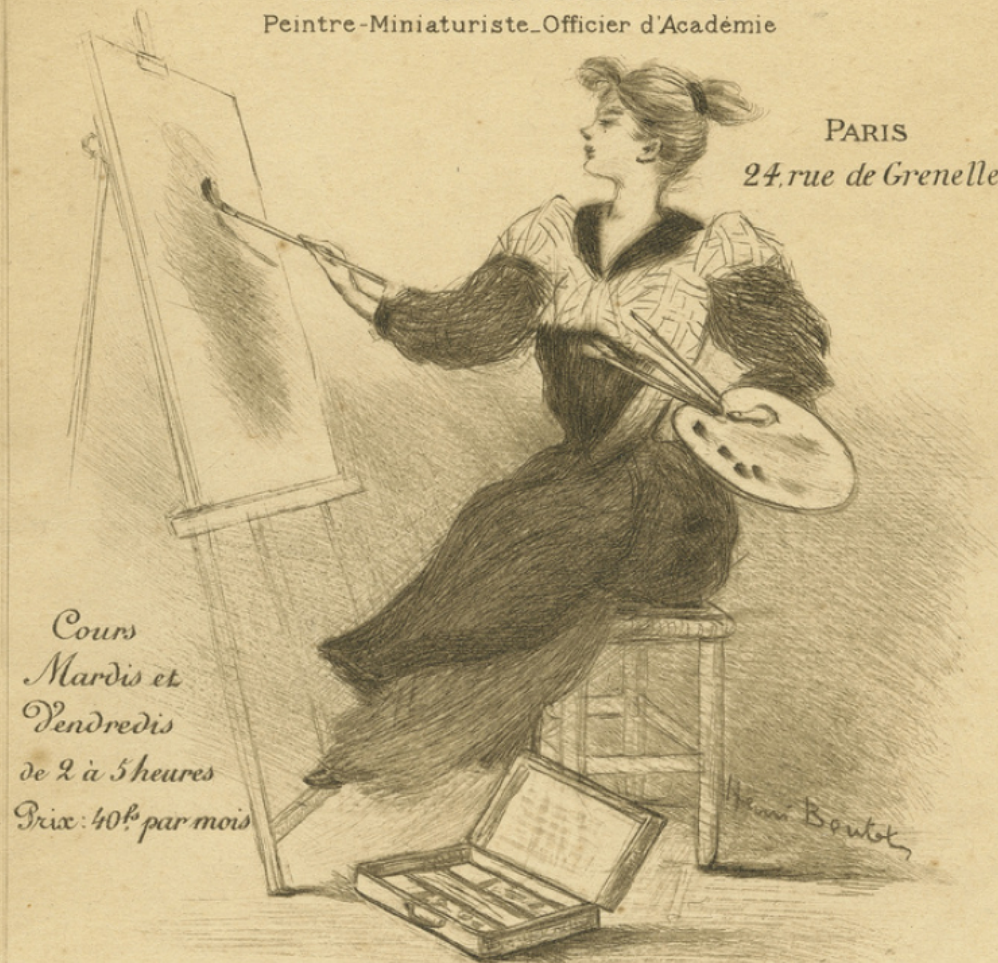 Peintre-Miniaturiste_Officier d'Académie
PARIS
24, rue de Grenelle
Cours
Mardis et
Vendredis
de 2 à 5 heures
Prix : 40fs par mois
Henri Boutet